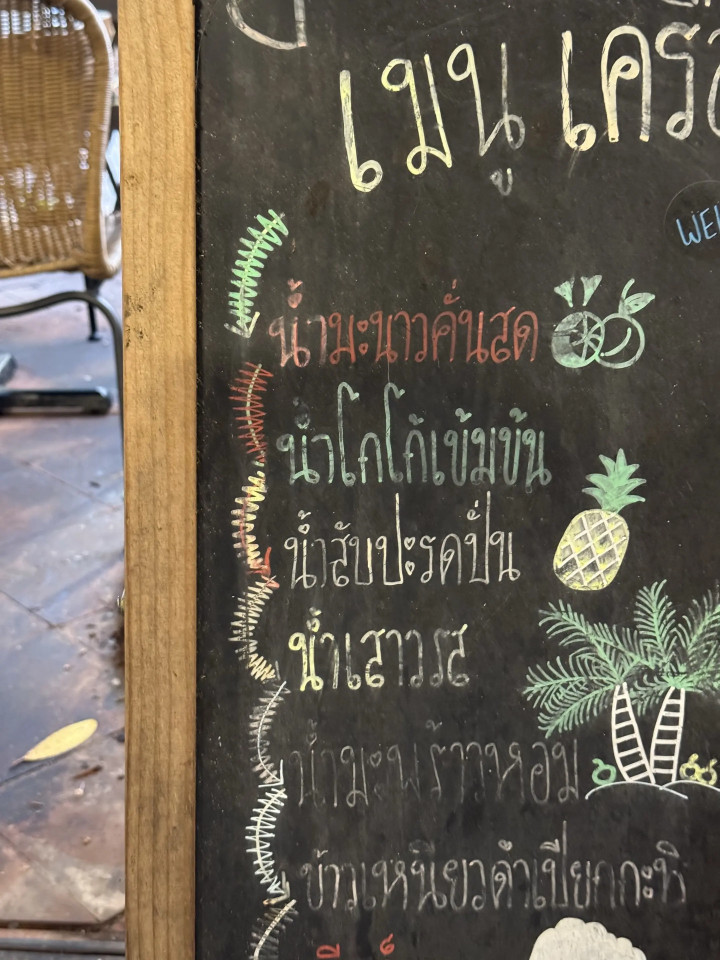 เมนู
WEL
น้ำมะนาวคั้นสด
น้ำโกโก้เข้มข้น
น้ำสับปะรดปั่น
น้ำเสาวรส
น้ำมะพร้าวหอม
ข้าวเหนียวดำเปียกกะทิ